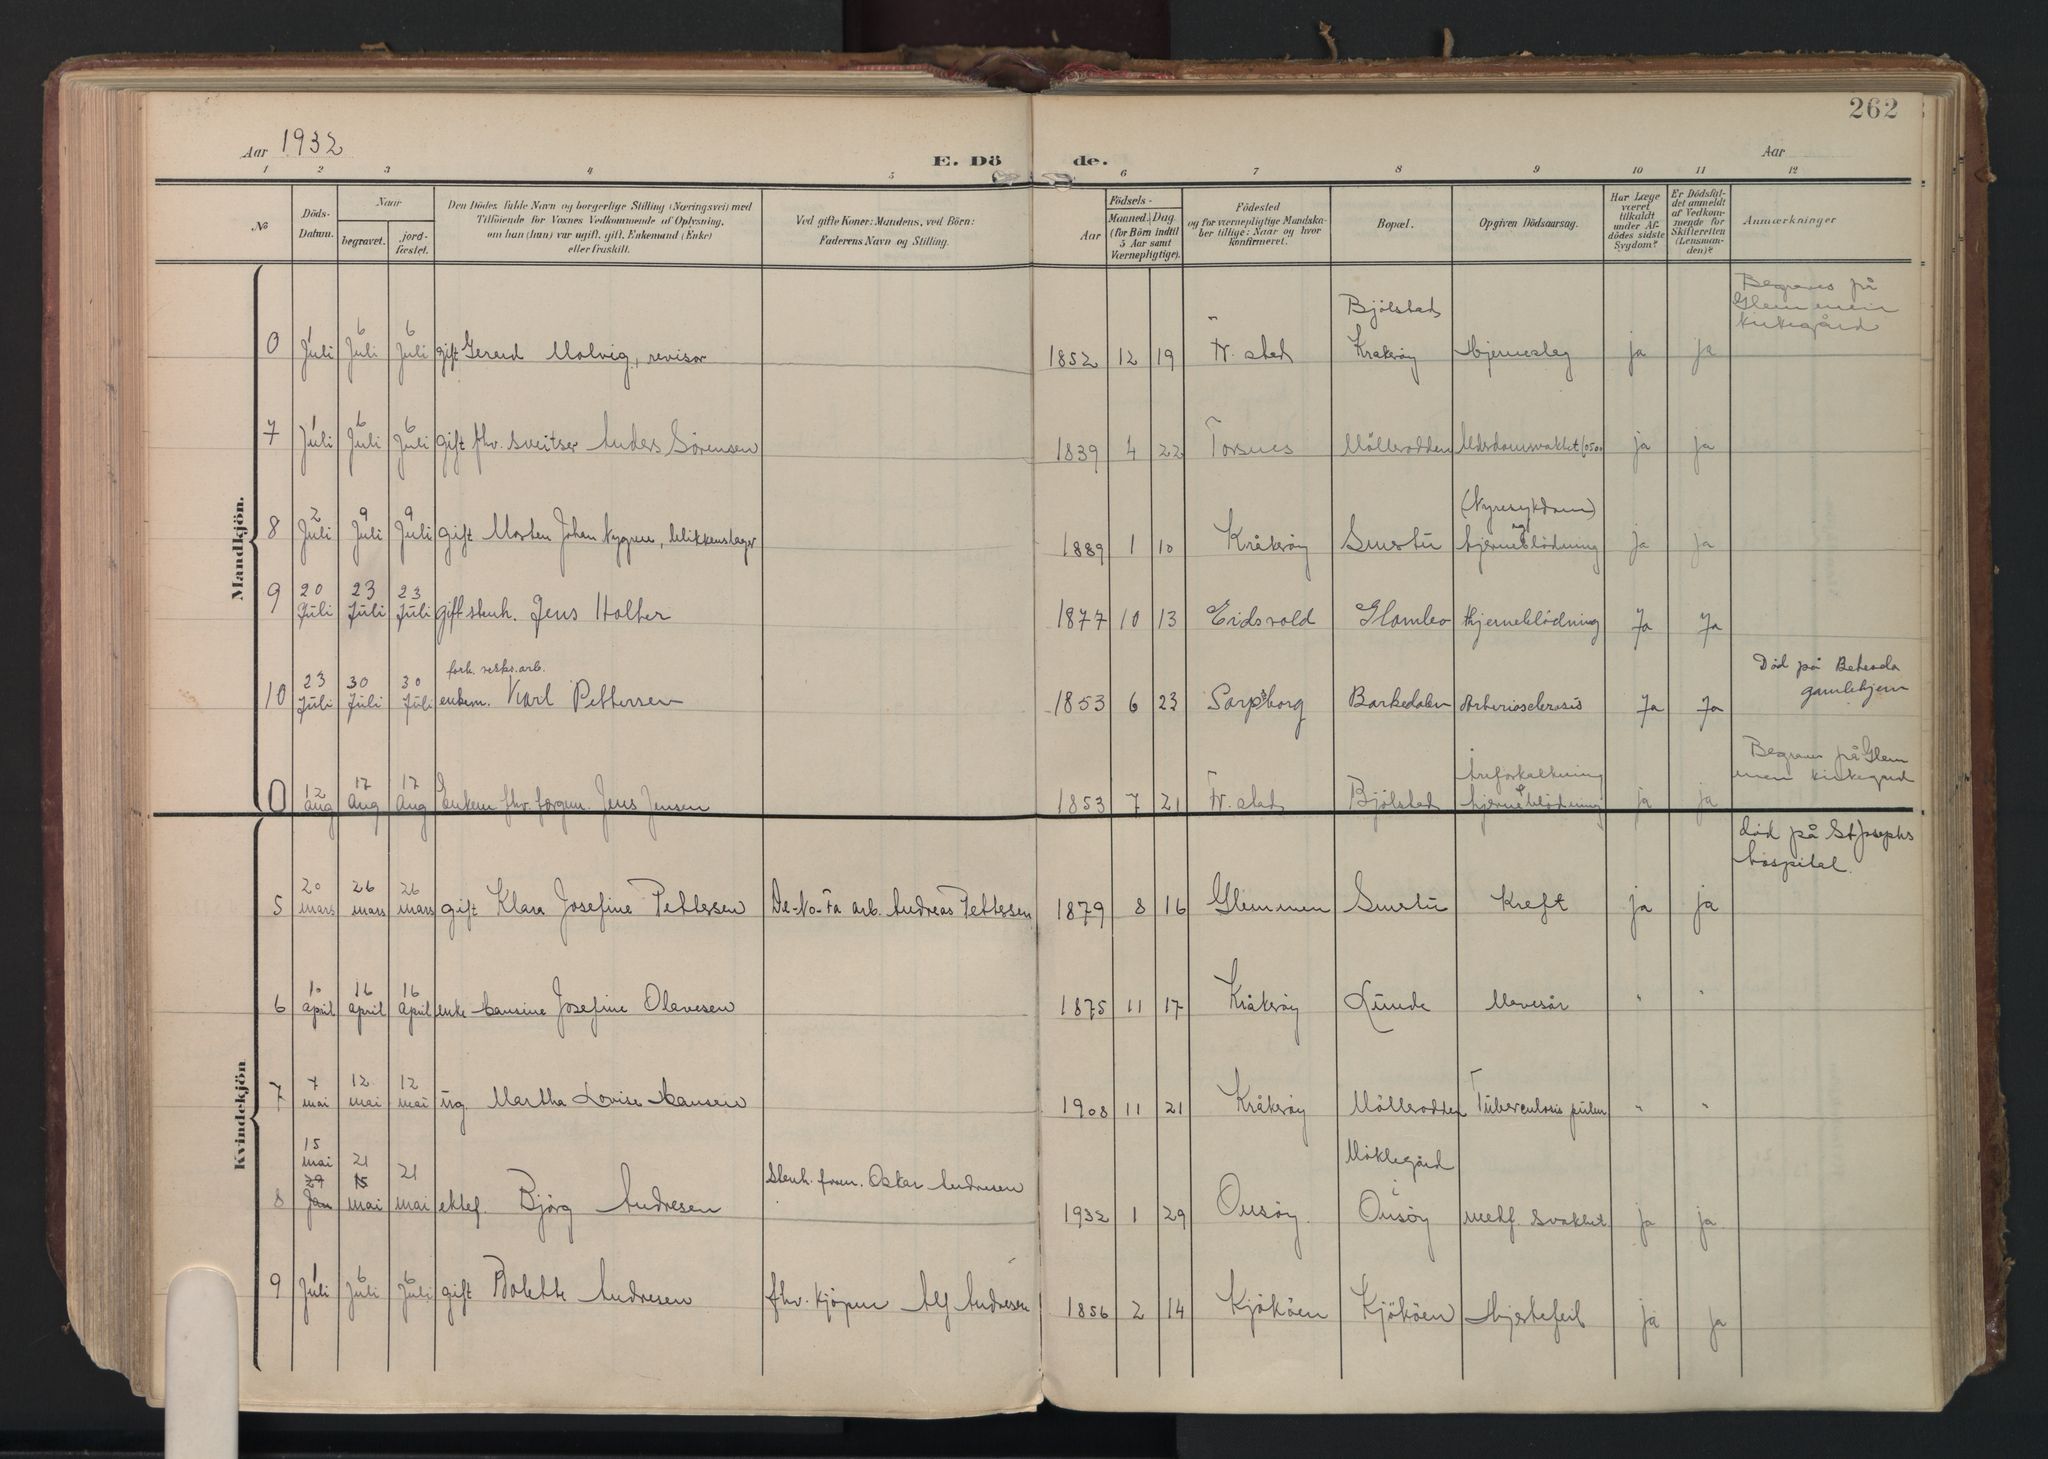 262
Aar 1932
E. Döde.
Aar
1 2 3 4 5 6 7 8 9 10 11 12
№
Döds-Datum.
Naar
begravet.
jord-fæstet.
Den Dödes fulde Navn og borgerlige Stilling (Næringsvei) med
Tilföiende for Voxnes Vedkommende af Oplysning,
om han (hun) var ugift, gift, Enkemand (Enke)
eller fraskilt.
Ved gifte Koner: Mandens, ved Börn:
Faderens Navn og Stilling.
Födsels-
Aar
Maaned. Dag.
(for Börn indtil
5 Aar samt
Værnepligtige).
Födested
og for værnepligtige Mandska-
ber tillige: Naar og hvor
Konfirmeret.
Bopæl.
Opgiven Dödsaarsag.
Har Læge
været
tilkaldt
under Af-
dödes sidste
Sygdom?
Er Dödsfal-
det anmeldt
af Vedkom-
mende for
Skifteretten
(Lensman-
den)?
Anmærkninger
Mandkjön.
0 1 Juli 6 Juli 6 Juli gift Gerard Molvig, revisor 1852 12 19 Fr. stad Bjölstad Kråkröy Hjerneslag ja ja Begraves på Glemmen kirkegård
7 1 Juli 6 Juli 6 Juli gift fhv. sveitser Anders Sørensen 1839 4 22 Torsnes Möllerodden Alderdomsvakhet ja ja
8 2 Juli 9 Juli 9 Juli gift Morten Johan Nygren, blikkenslager 1889 1 10 Kråkröy Smertu (Nyresykdom) og hjerneblödning ja ja
9 20 Juli 23 Juli 23 Juli gift stenh. Jens Holter 1877 10 13 Eidsvold Glombo Hjerneblödning Ja Ja
10 23 Juli 30 Juli 30 Juli forh. verks.arb. enkem. Karl Pettersen 1853 6 23 Sarpsborg Barkedalen Arteriosclerosis Ja Ja Död på Betesda gamlehjem
0 12 Aug 17 Aug 17 Aug Enkem fhv. færgem. Jens Jensen 1853 7 21 Fr. stad Bjölstad Åreforkalkning & hjerneblödning ja ja Begraves på Glemmen kirkegård
Kvindekjön
5 20 mars 26 mars 26 mars gift Klara Josefine Pettersen De-No-Fa arb. Andreas Pettersen 1879 8 16 Glemmen Smertu Kreft ja ja död på St Josephs hospital.
6 10 April 16 April 16 April enke Hansine Josefine Olavesen 1875 11 17 Kråkröy Lunde Mavesår " "
7 7 mai 12 mai 12 mai ug. Martha Lovise Hansen 1908 11 21 Kråkröy Möllerodden Tuberculosis pulm " "
8 15 mai 29 Jan 21 15 mai 21 mai ektef. Björg Andresen Stenh. form. Oskar Andresen 1932 1 29 Onsöy. Möklegård i Onsöy medf. svakhet ja ja
9 1 Juli 6 Juli 6 Juli gift Bolette Andresen fhv. kjöpm Alf Andresen 1856 2 14 Kjököen Kjököen Hjertefeil ja ja